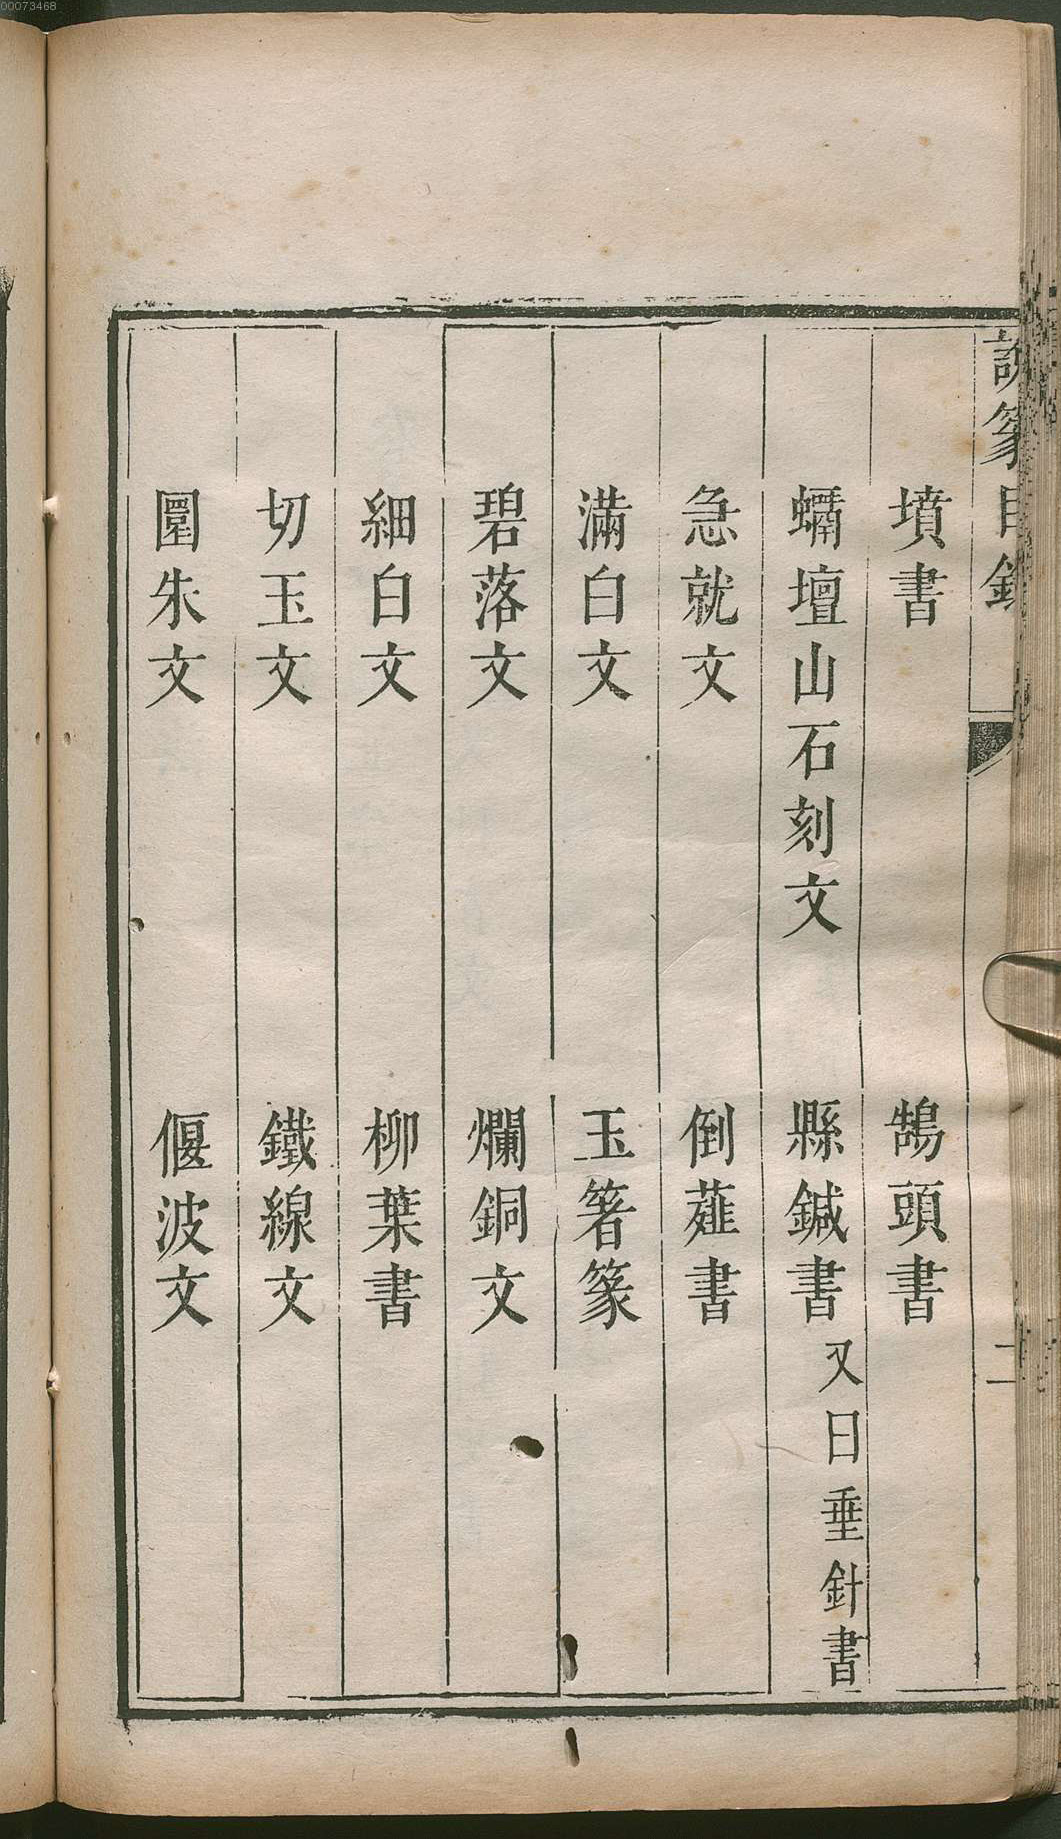 00073468
說篆目錄
二
墳書 鵠頭書
蠕壇山石刻文 縣鍼書 又曰垂針書
急就文 倒薤書
滿白文 玉箸篆
碧落文 爛銅文
細白文 柳葉書
切玉文 鐵線文
圓朱文 偃波文